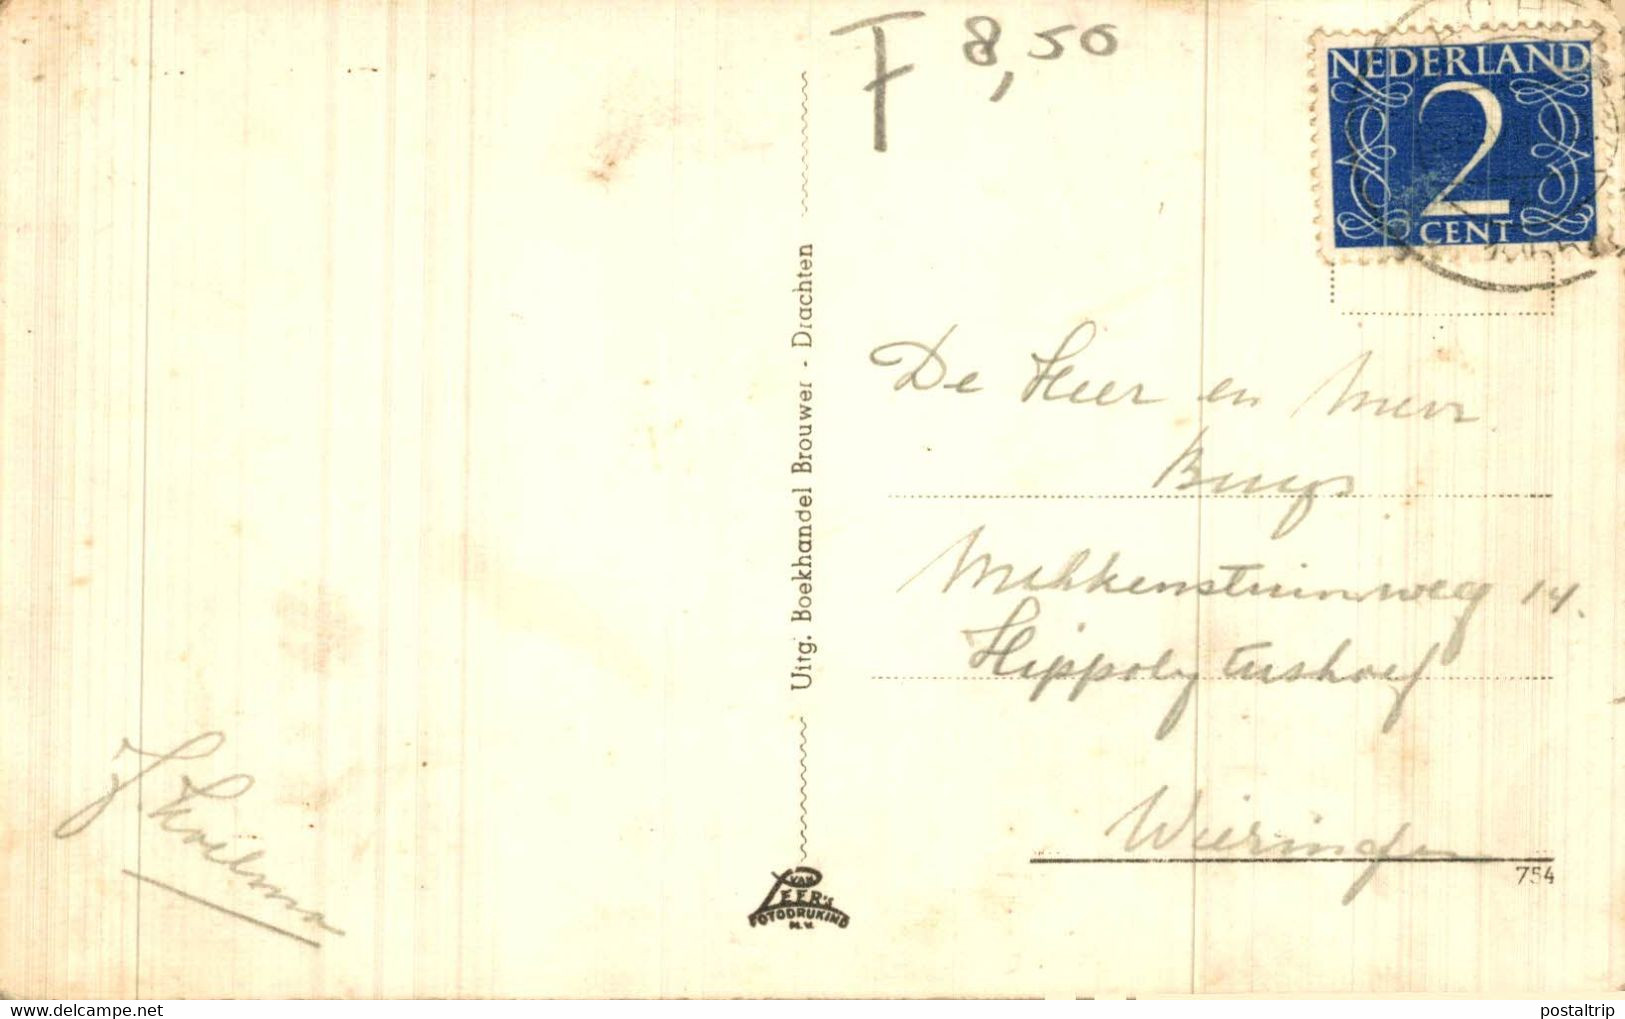 F 8,50
NEDERLAND
2
CENT
De Heer en Mevr
Buys
14.
Hippolytushoef
Wieringen
754
Uitg. Boekhandel Brouwer - Drachten
VAN
LEER's
FOTODRUKIND
N.V.
J.
postaltrip
www.delcampe.net